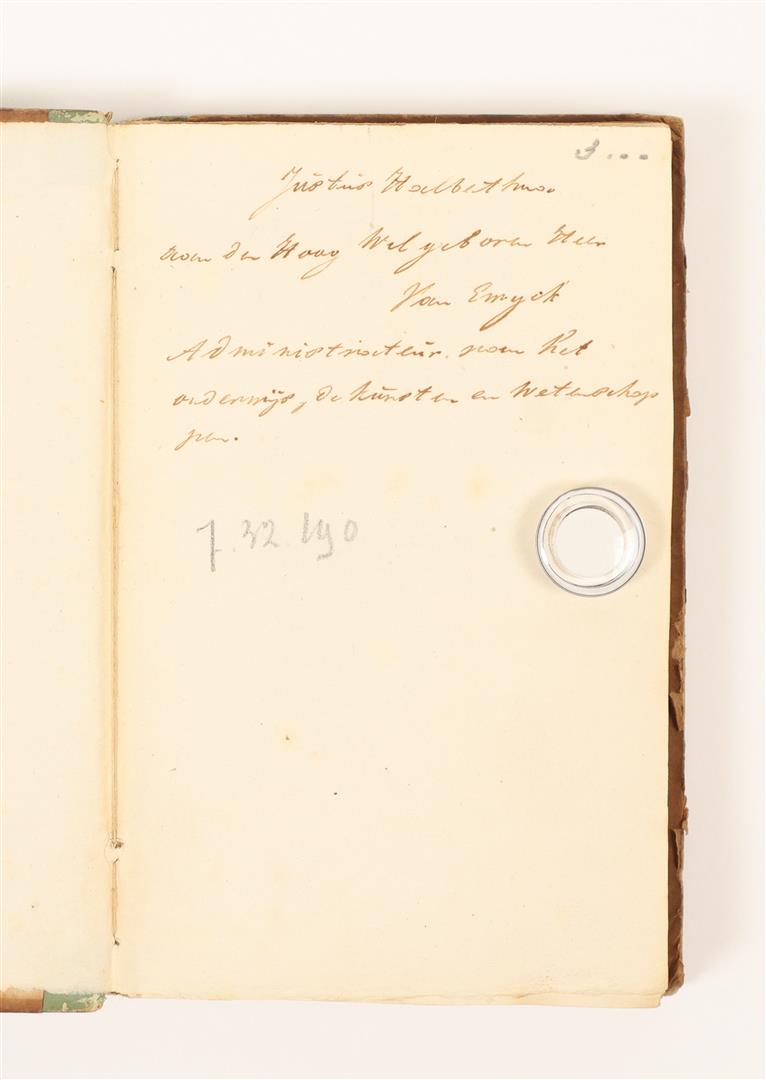 3...
Justus Halbethma.
van den Hoog Welgeboren Heer
Van Ewyck
Administrateur van het
onderwijs, de kunsten en wetenschap
pen.
7.32.190